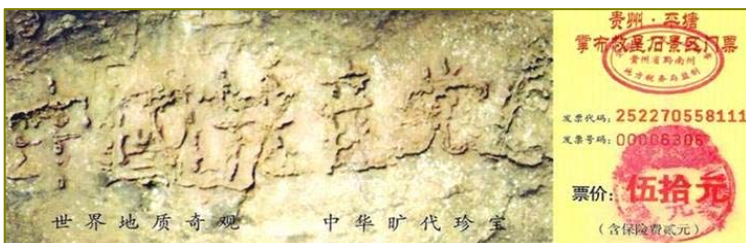 中國共产党
世界地质奇观 中华旷代珍宝
贵州·平塘
掌布救星石景区门票
贵州省黔南州
地方税务局监制
发票代码：252270558111
发票号码：
票价：伍拾元
（含保险费贰元）